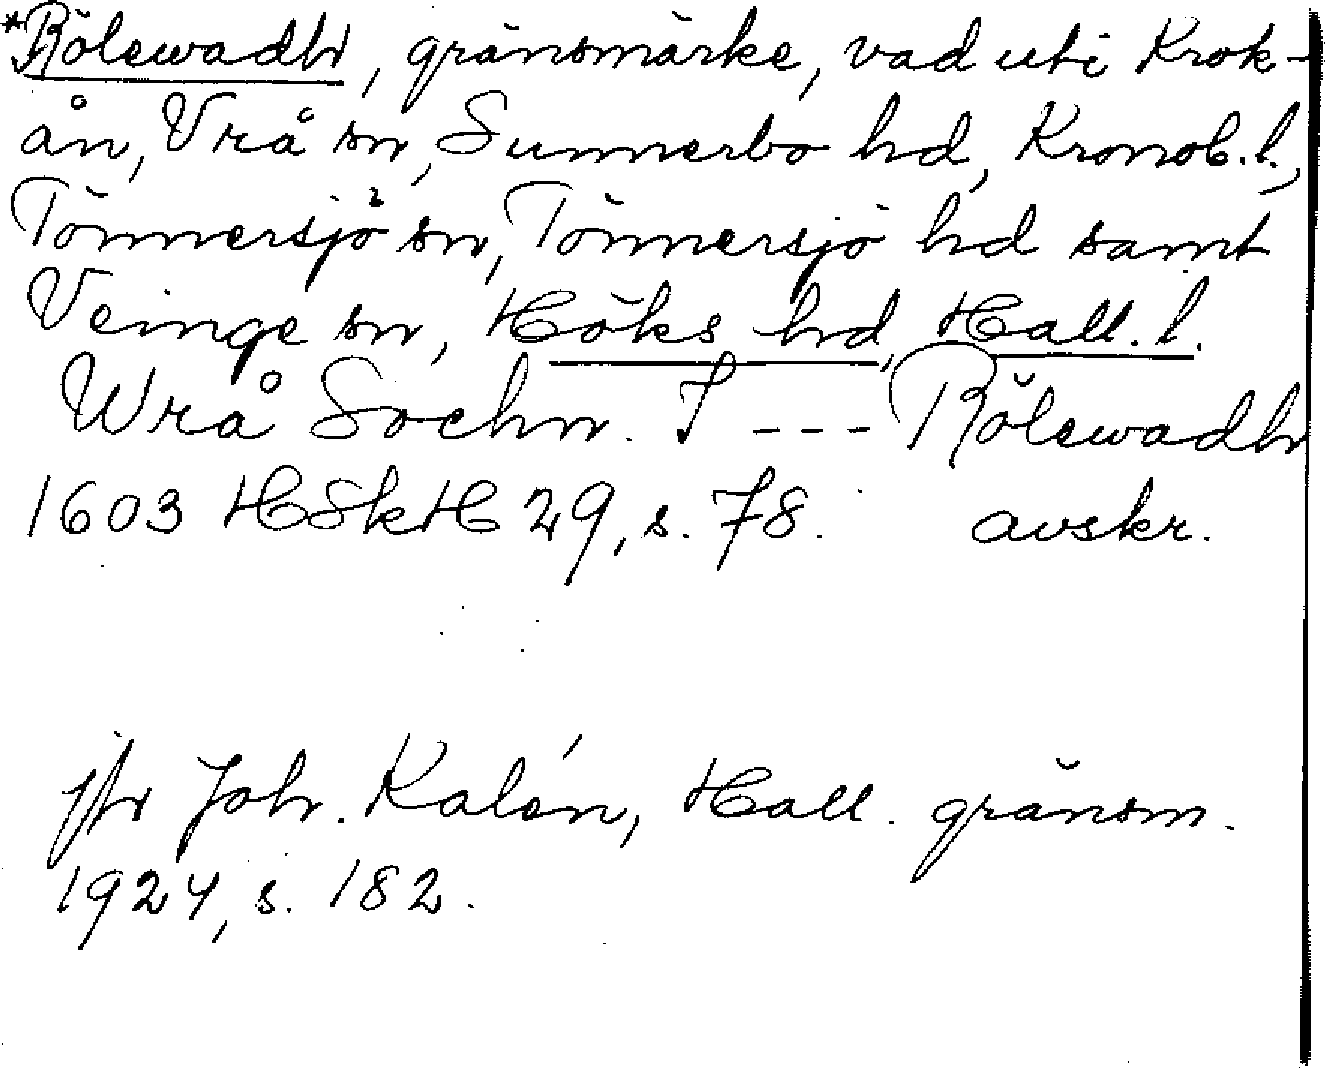 *Rölewadh, gränsmärke, vad uti Krok-
ån, Vrå sn, Sunnerbo hd, Kronob. l.,
Tönnersjö sn, Tönnersjö hd samt
Veinge sn, Höks hd, Hall. l.
Wrå Sochn. I --- Rölewadh
1603 HSkH 29, s. 78. avskr.
jfr Joh. Kalén, Hall. gränsm.
1924, s. 182.